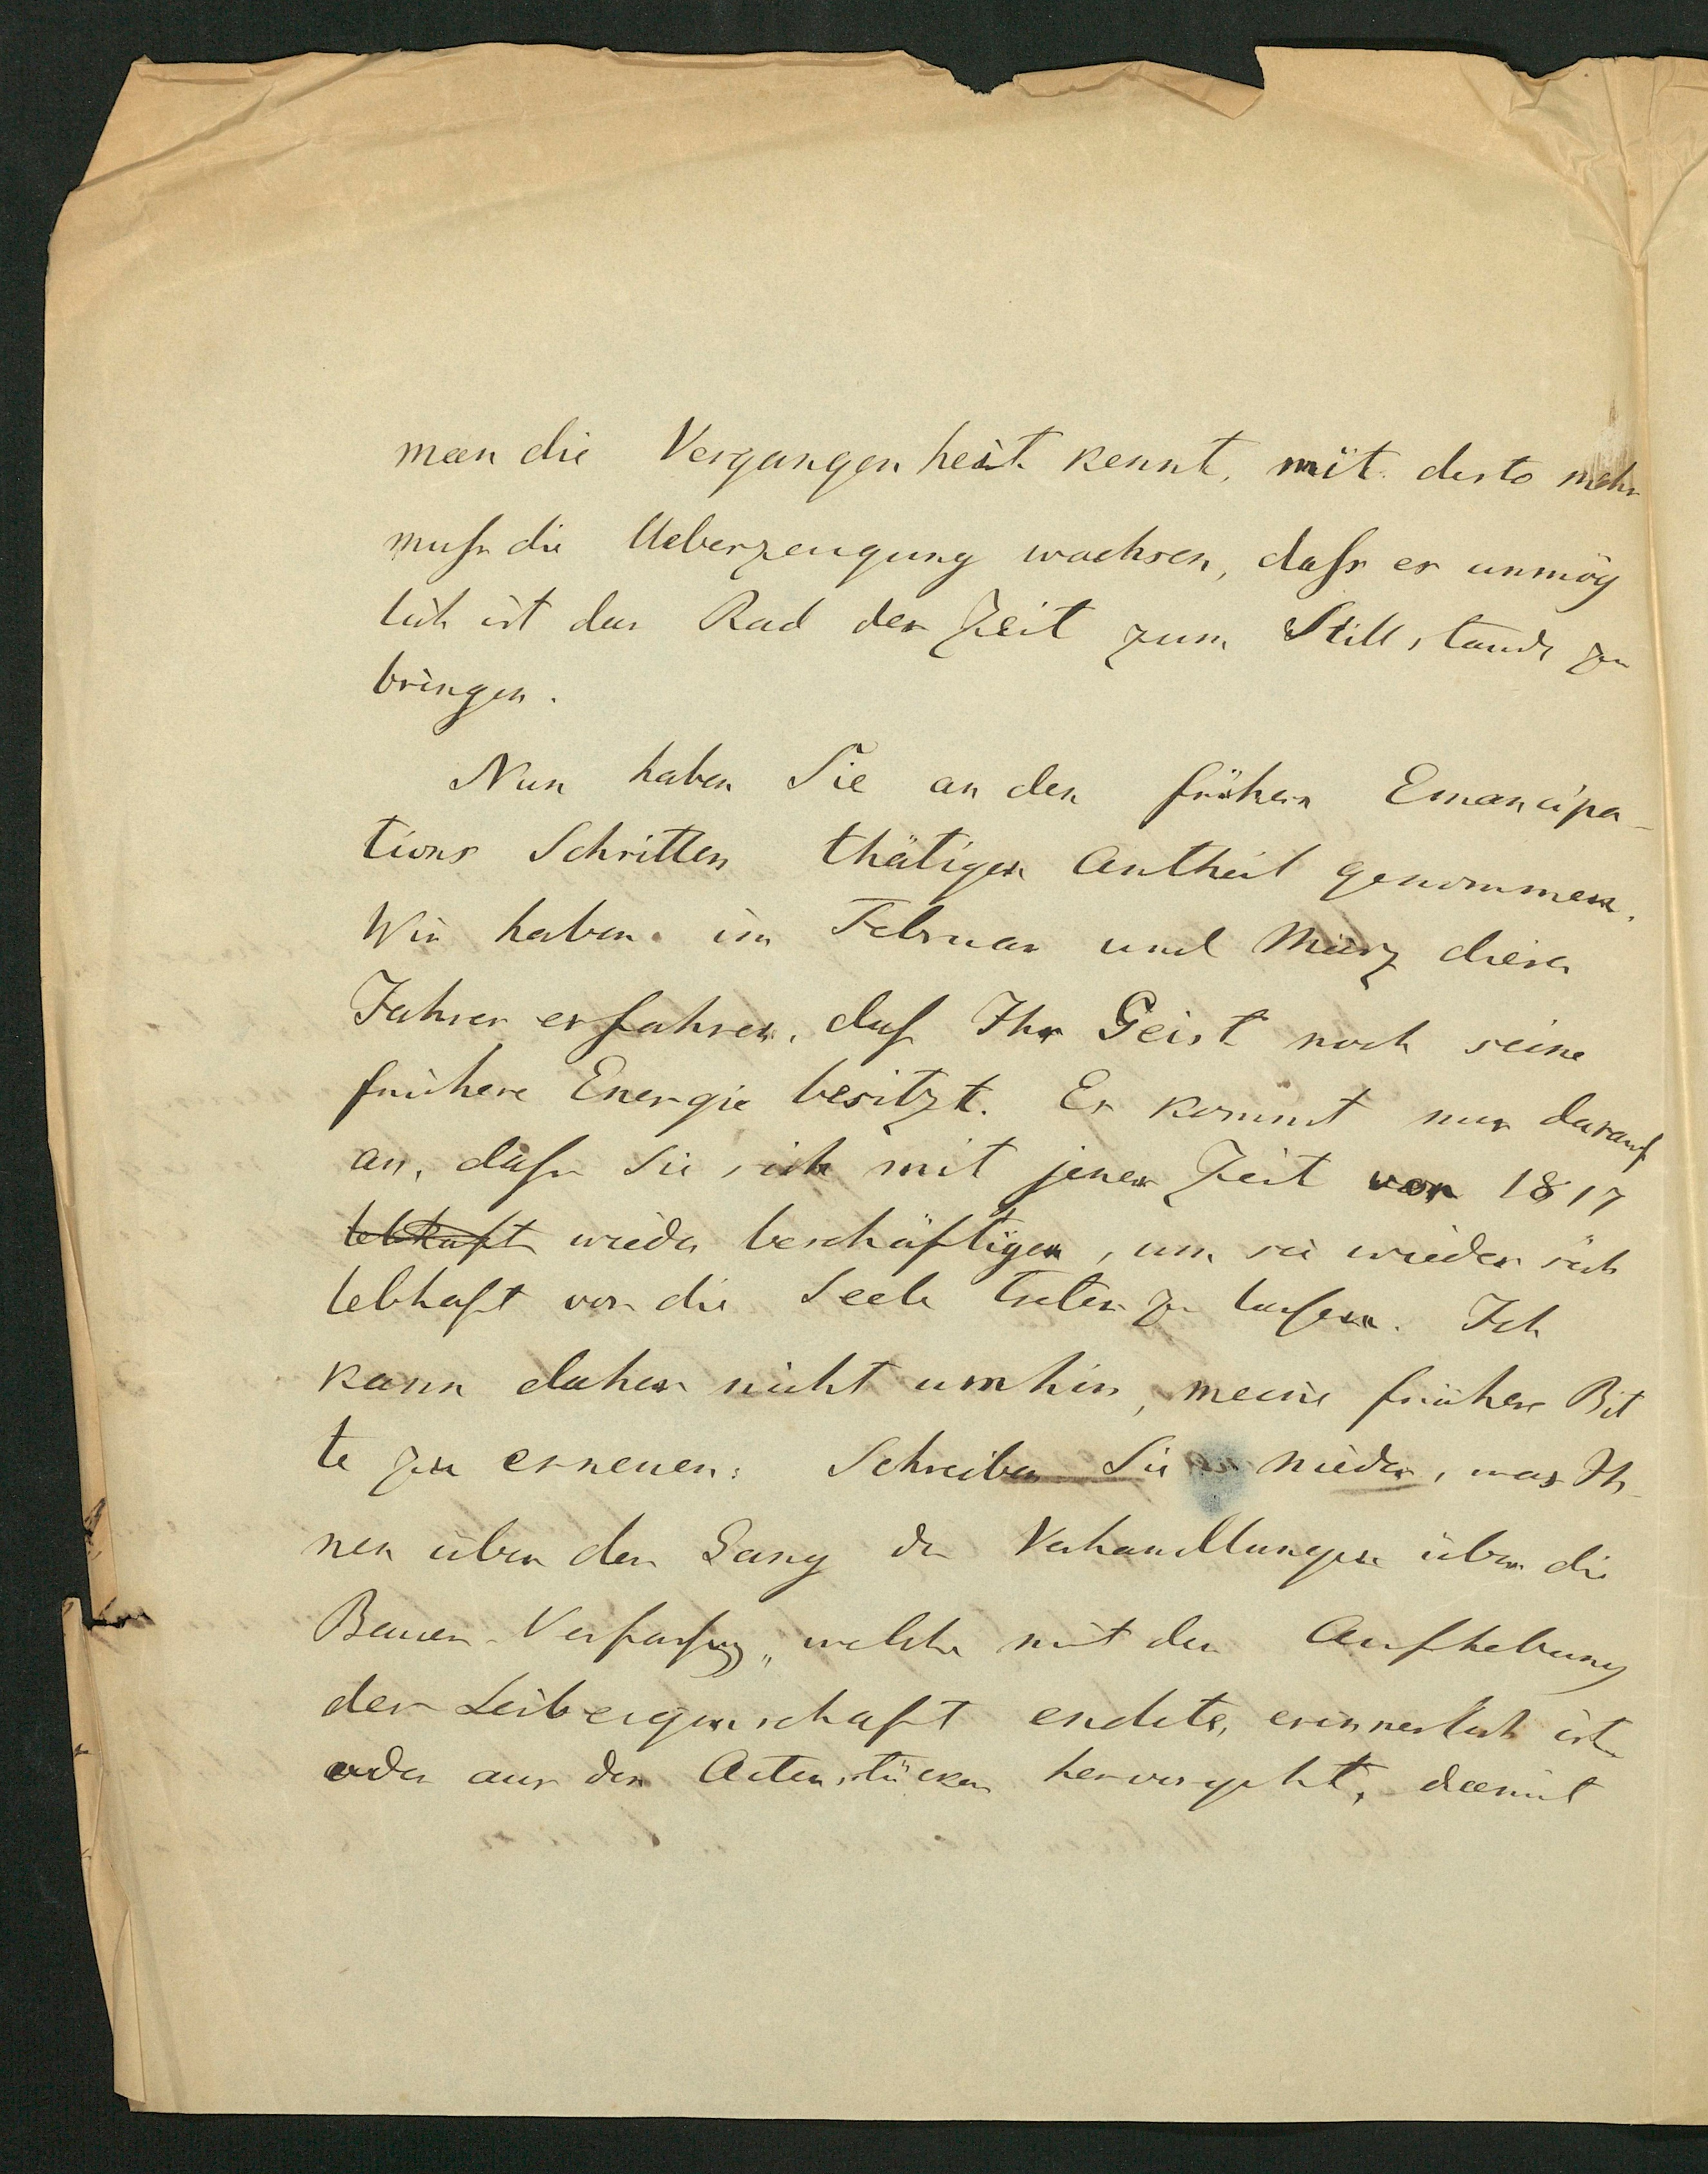 man die Vergangenheit kennt, mit desto mehr
muſs die Ueberzeugung wachsen, daſs es unmög
lich ist das Rad der Zeit zum Stillstande zu
bringen.
Nun haben Sie an den frühern Emancipa-
tions Schritten thätigen Antheil genommen.
Wir haben im Februar und März dieses
Jahres erfahren, daſs Ihr Geist noch seine
frühere Energie besitzt. Es kommt nur darauf
an, daſs Sie sich mit jener Zeit vor 1817
lebhaft wieder beschäftigen, um sie wieder sich
lebhaft vor die Seele treten zu laſsen. Ich
kann daher nicht umhin, meine frühere Bit
te zu erneuen: Schreiben Sie nieder, was Ih-
nen über den Gang der Verhandlungen über die
Bauer-Verfaſsung, welche mit der Aufhebung
der Leibeigenschaft endete, erinnerlich ist
oder aus den Actenstücken hervorgeht, damit